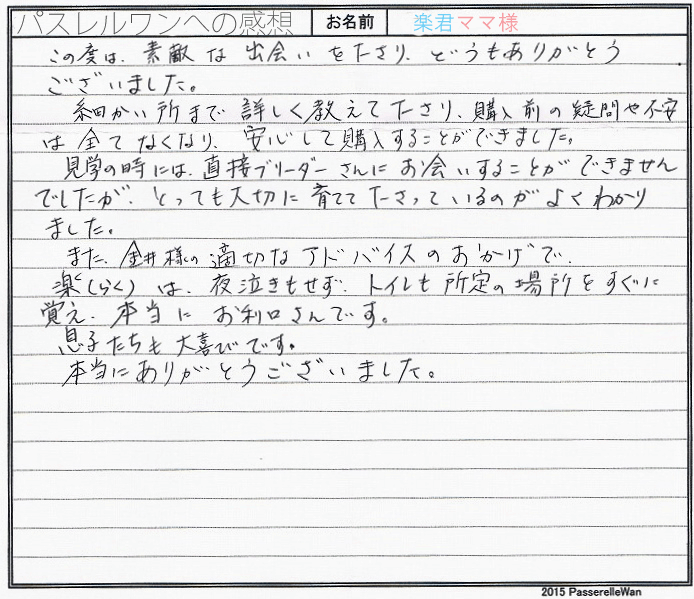 パスレルワンへの感想 お名前 楽君ママ様
この度は、素敵な出会いをたさり、どうもありがとう
ございました。
細かい所まで詳しく教えてたさり、購入前の疑問や不安
は全てなくなり、安心して購入することができました。
見学の時には、直接ブリーダーさんにお会いすることができません
でしたが、とっても大切に育ててたさっているのがよくわかり
ました。
また、金井様の適切なアドバイスのおかげで、
楽(らく)は、夜泣きもせず、トイレも所定の場所をすぐに
覚え、本当にお利口さんです。
息子たちも大喜びです。
本当にありがとうございました。
2015 PasserelleWan